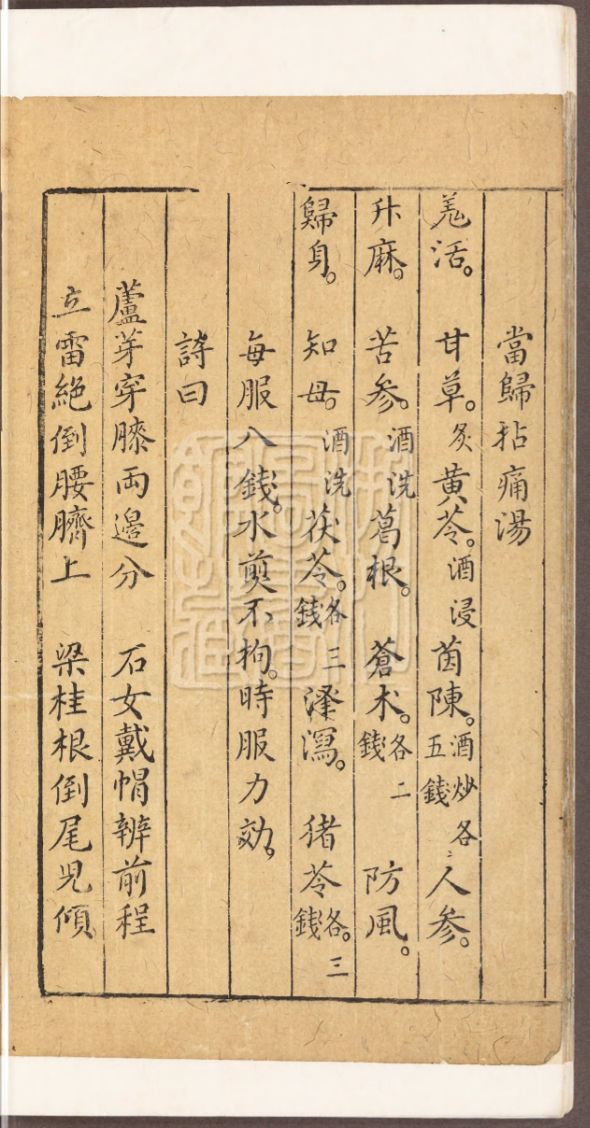 當歸拈痛湯
羗活。 甘草。炙 黄芩。酒浸 茵陳。酒炒各五錢 人参。
升麻。 苦参。酒洗 葛根。 蒼术。各二錢 防風。
歸身。 知母。酒洗 茯苓。各三錢 澤瀉。 猪苓各。三錢
每服八錢。水煎不拘。時服力効。
詩曰
蘆芽穿膝両邉分 石女戴帽辨前程
立雷絶倒腰臍上 梁桂根倒尾児傾